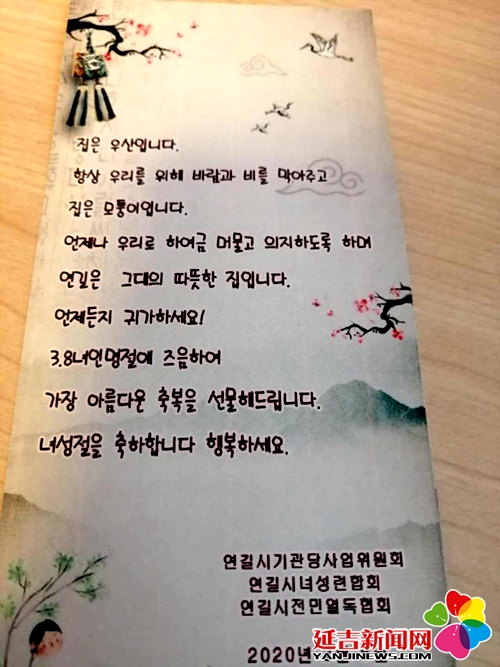 집은 우산입니다.
항상 우리를 위해 바람과 비를 막아주고
집은 모퉁이입니다.
언제나 우리로 하여금 머물고 의지하도록 하며
연길은 그대의 따뜻한 집입니다.
언제든지 귀가하세요!
3.8녀인명절에 즈음하여
가장 아름다운 축복을 선물해드립니다.
녀성절을 축하합니다 행복하세요.
연길시기관당사업위원회
연길시녀성련합회
연길시전민열독협회
2020년
延吉新闻网
YANJINEWS.COM